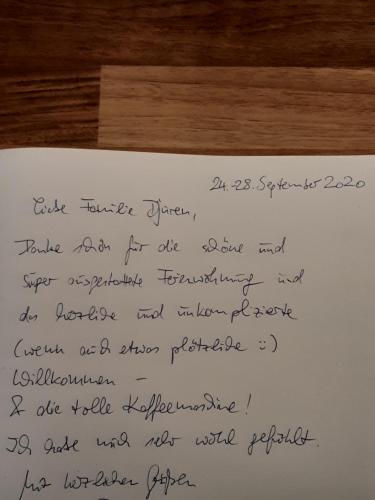 24.-28. September 2020
Liebe Familie Djüren,
Danke schön für die schöne und
super ausgestattete Ferienwohnung und
das herzliche und unkomplizierte
(wenn auch etwas plötzliche :))
Willkommen –
& die tolle Kaffeemaschine!
Ich habe mich sehr wohl gefühlt.
Mit herzlichen Grüßen